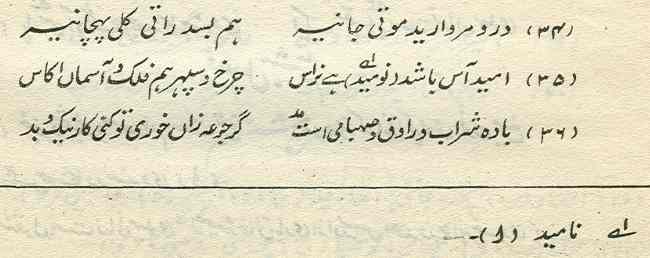 (۳۴) در و مروارید موتی جانیہ ہم بسد راتی کلی پہچانیہ
(۳۵) امید آس باشد دنومید اے ہے نراس چرخ و سپہر ہم فلک و آسماں اکاس
(۳۶) بادہ شراب و راوق و صہبا می است مد گر جرعہ زاں خوری تو کنی کار نیک و بد
اے نامید (۱)۔